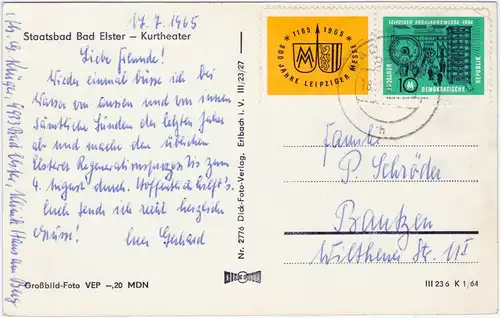 17.7.1965
Staatsbad Bad Elster – Kurtheater
Liebe Freunde!
Wieder einmal büsse ich bei
Wasser von aussen und von innen
sämtliche Sünden der letzten Jahre
ab und mache den üblichen
Elsterer Regenerationsprozess bis zum
4. August durch. Hoffentlich hilft's.
Euch sende ich recht herzliche
Grüsse! Euer Gerhard
Krüger, 9933 Bad Elster, Klinik Haus am Berg
Großbild-Foto VEP –,20 MDN
Nr. 2776 Dick-Foto-Verlag, Erlbach i. V. III/23/27
1165 1965
800 JAHRE LEIPZIGER MESSE
LEIPZIGER FRÜHJAHRSMESSE 1964
10
DEUTSCHE DEMOKRATISCHE REPUBLIK
Familie
P. Schröder
Bautzen
Wilthener Str. 11
III 23 6 K 1/64